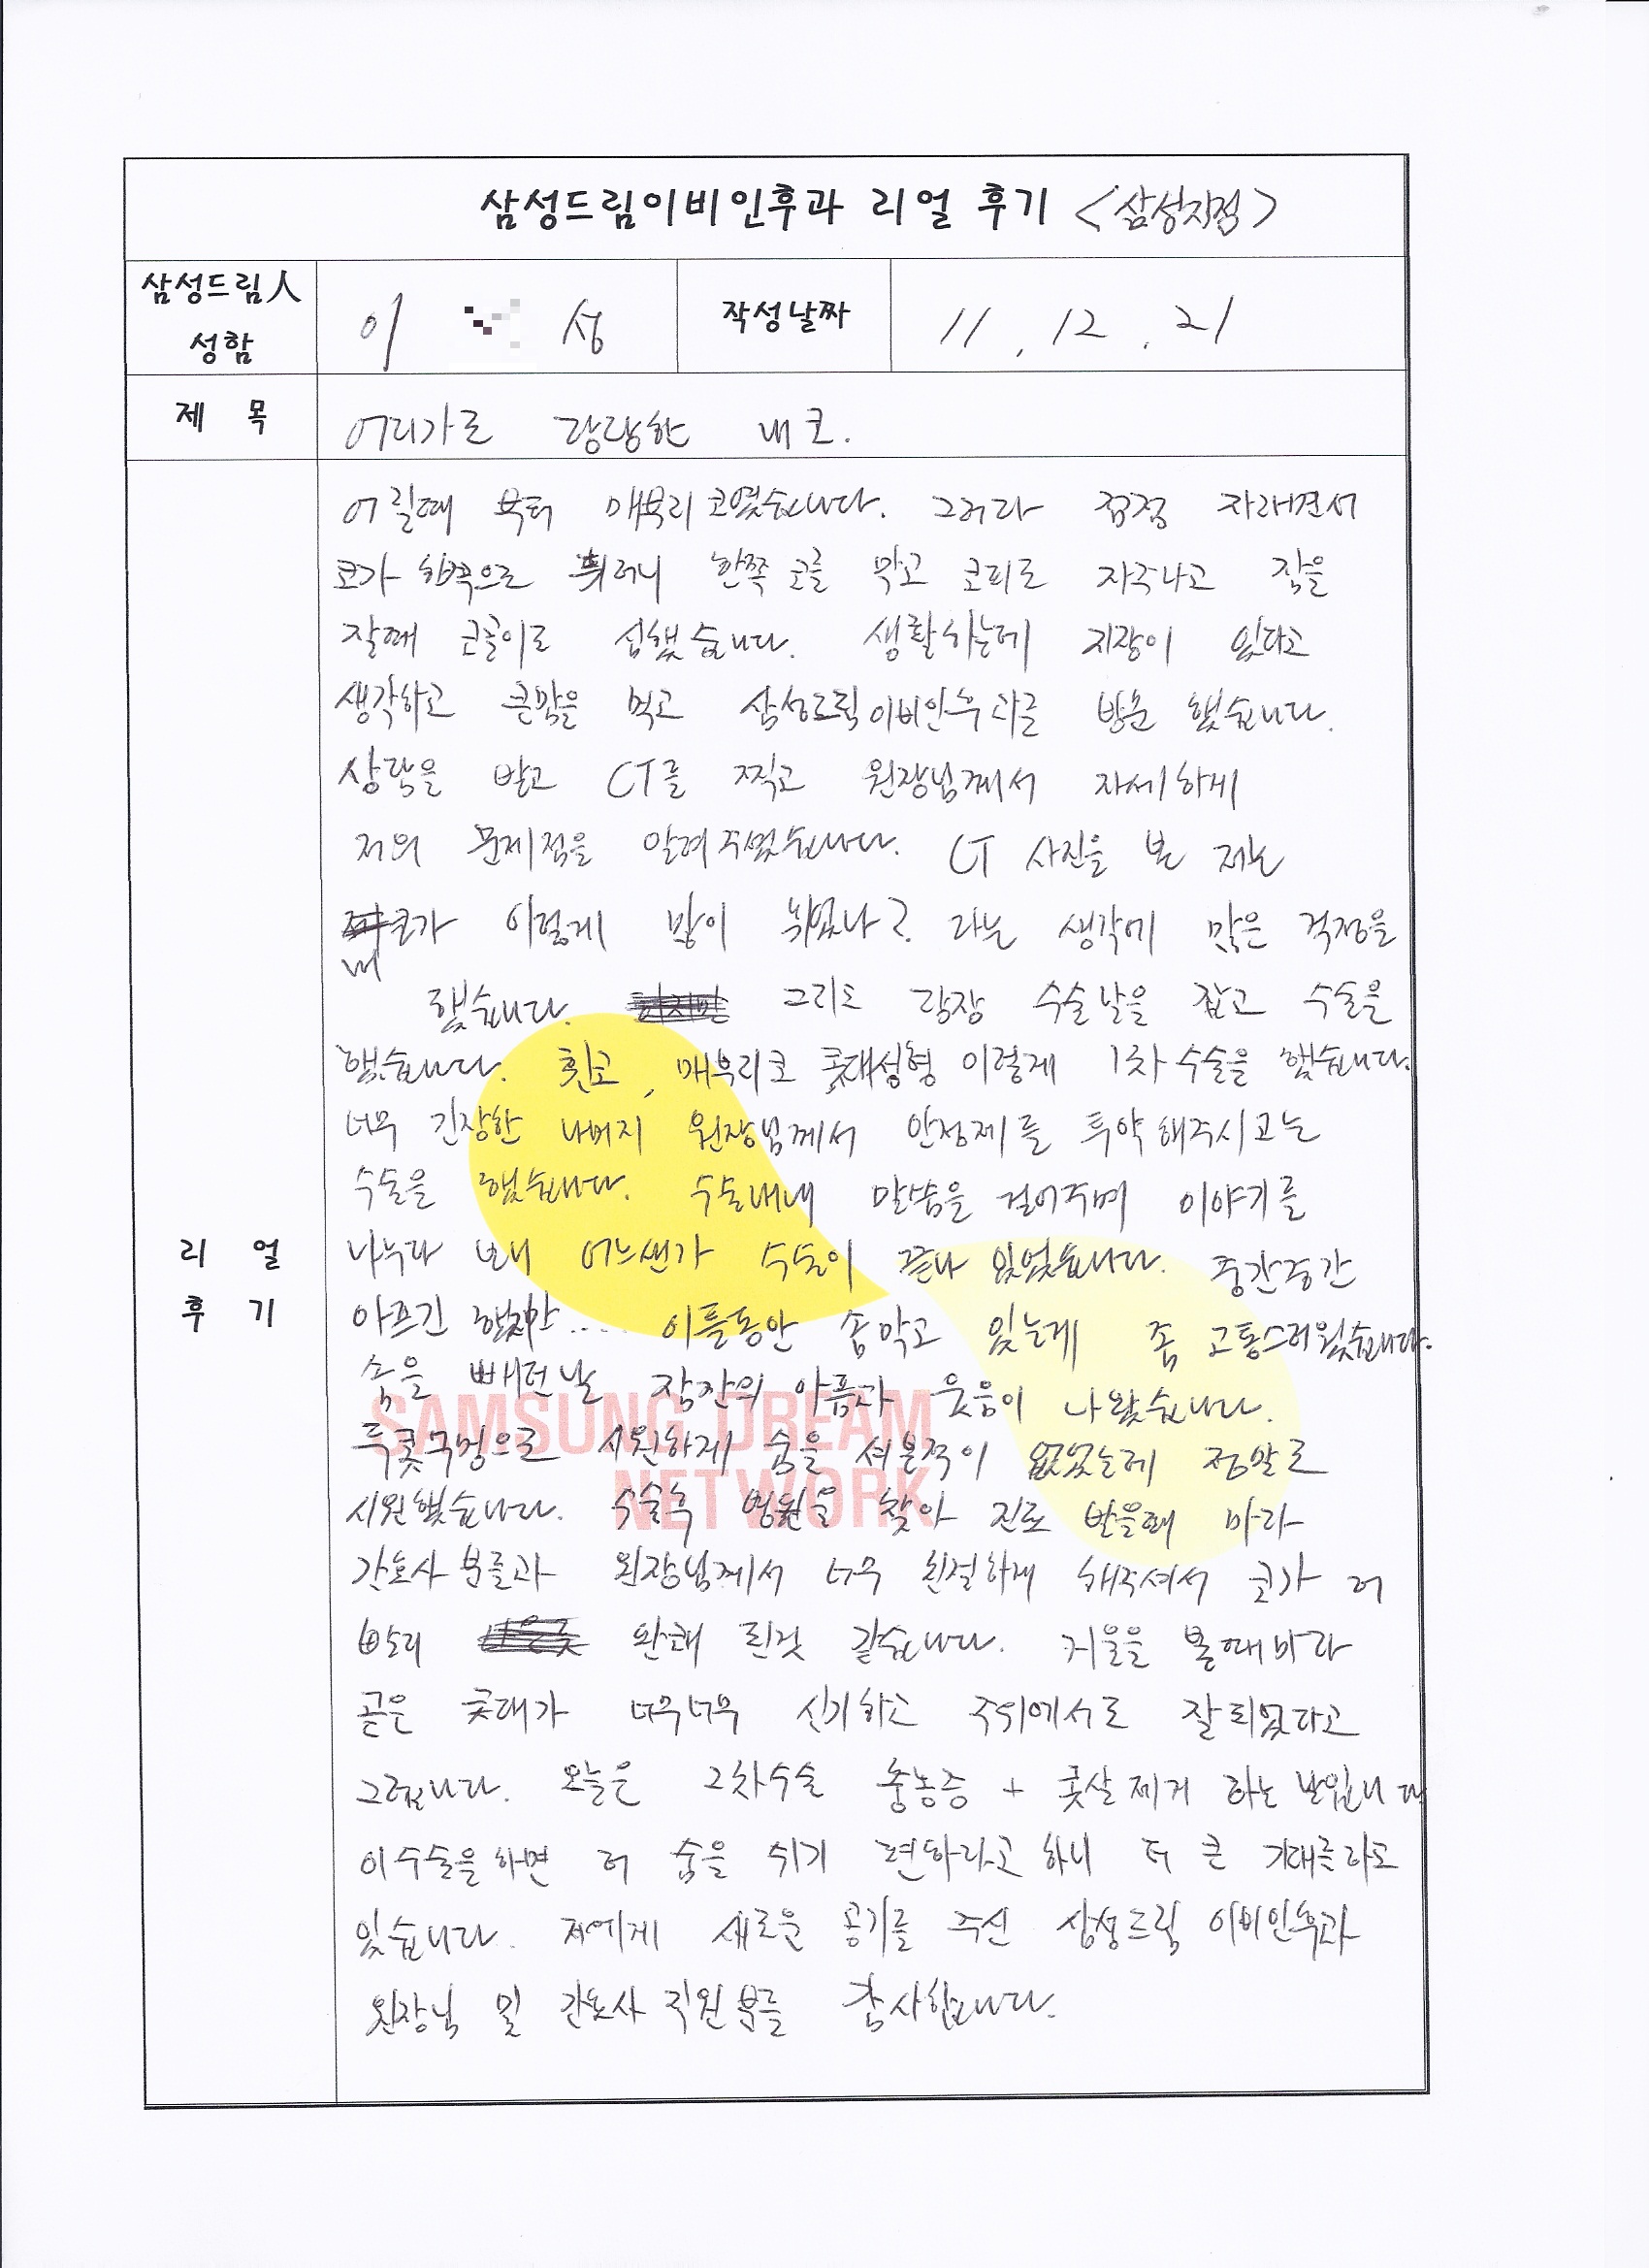 삼성드림이비인후과 리얼 후기 <삼성지점>
삼성드림人 성함
이 성
작성날짜
11. 12. 21
제 목
어디가도 당당한 내 코.
리 얼 후 기
어릴때 부터 매부리코였습니다. 그러다 점점 자라면서
코가 한쪽으로 휘더니 한쪽 코를 막고 코피도 자주나고 잠을
잘때 코골이도 심했습니다. 생활하는데 지장이 있다고
생각하고 큰맘을 먹고 삼성드림이비인후과를 방문 했습니다.
상담을 받고 CT를 찍고 원장님께서 자세하게
저의 문제점을 알려주셨습니다. CT 사진을 본 저는
내 코가 이렇게 많이 휘었나? 라는 생각에 많은 걱정을
했습니다. 그리고 당장 수술날을 잡고 수술을
했습니다. 휜코, 매부리코 콧대성형 이렇게 1차 수술을 했습니다.
너무 긴장한 나머지 원장님께서 안정제를 투약해주시고는
수술을 했습니다. 수술내내 말씀을 걸어주며 이야기를
나누다 보니 어느샌가 수술이 끝나 있었습니다. 중간중간
아프긴 했지만 ..... 이틀동안 솜막고 있는게 좀 고통스러웠습니다.
솜을 빼던날 잠깐의 아픔과 웃음이 나왔습니다.
SAMSUNG DREAM
두콧구멍으로 시원하게 숨을 쉬어본적이 없었는데 정말로
NETWORK
시원했습니다. 수술후 병원을 찾아 진료 받을때 마다
간호사분들과 원장님께서 너무 친절하게 해주셔서 코가 더
빨리 완쾌 된것 같습니다. 거울을 볼때마다
곧은 콧대가 너무너무 신기하고 주위에서도 잘되었다고
그럽니다. 오늘은 2차수술 축농증 + 콧살제거 하는 날입니다
이수술을 하면 더 숨을 쉬기 편하다고 하니 더 큰 기대를하고
있습니다. 저에게 새로운 공기를 주신 삼성드림 이비인후과
원장님 및 간호사 직원분들 감사합니다.